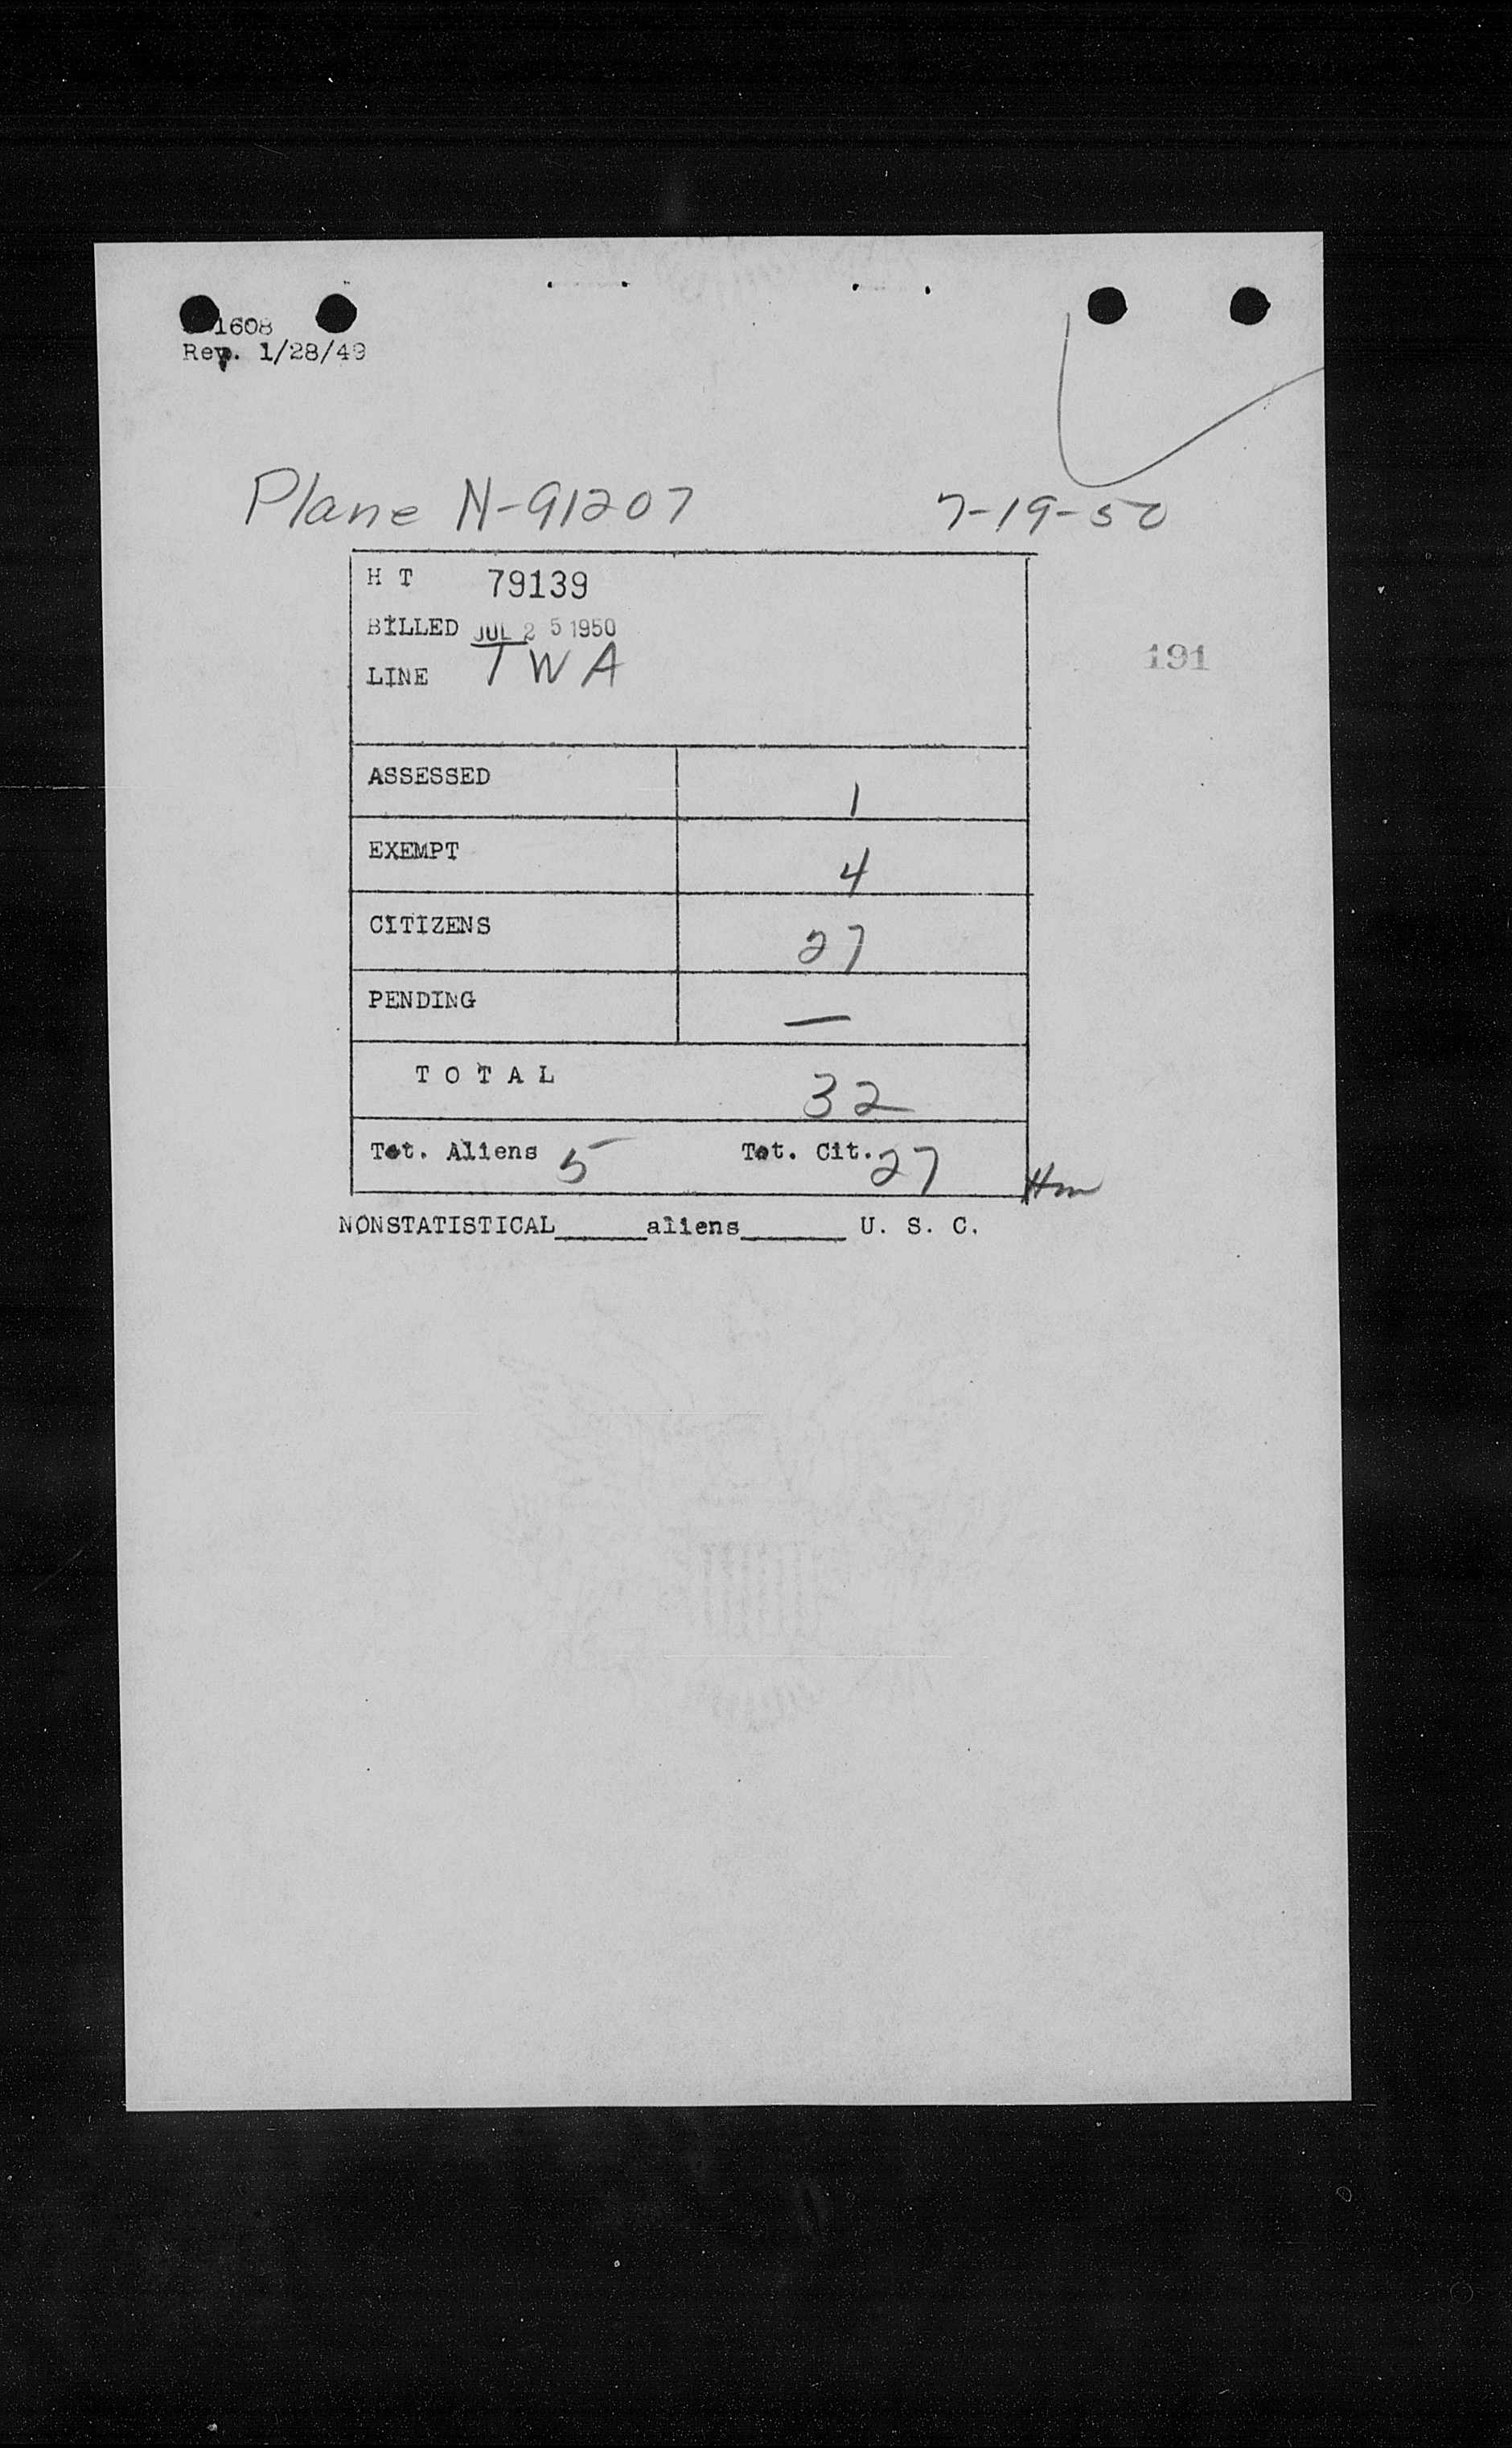 1608
Rev. 1/28/49
Plane N-91207 7-19-50
H T 79139
BILLED JUL 25 1950
LINE TWA
191
ASSESSED 1
EXEMPT 4
CITIZENS 27
PENDING —
T O T A L 32
Tot. Aliens 5 Tot. Cit. 27
Hm
NONSTATISTICAL_____aliens______ U. S. C.